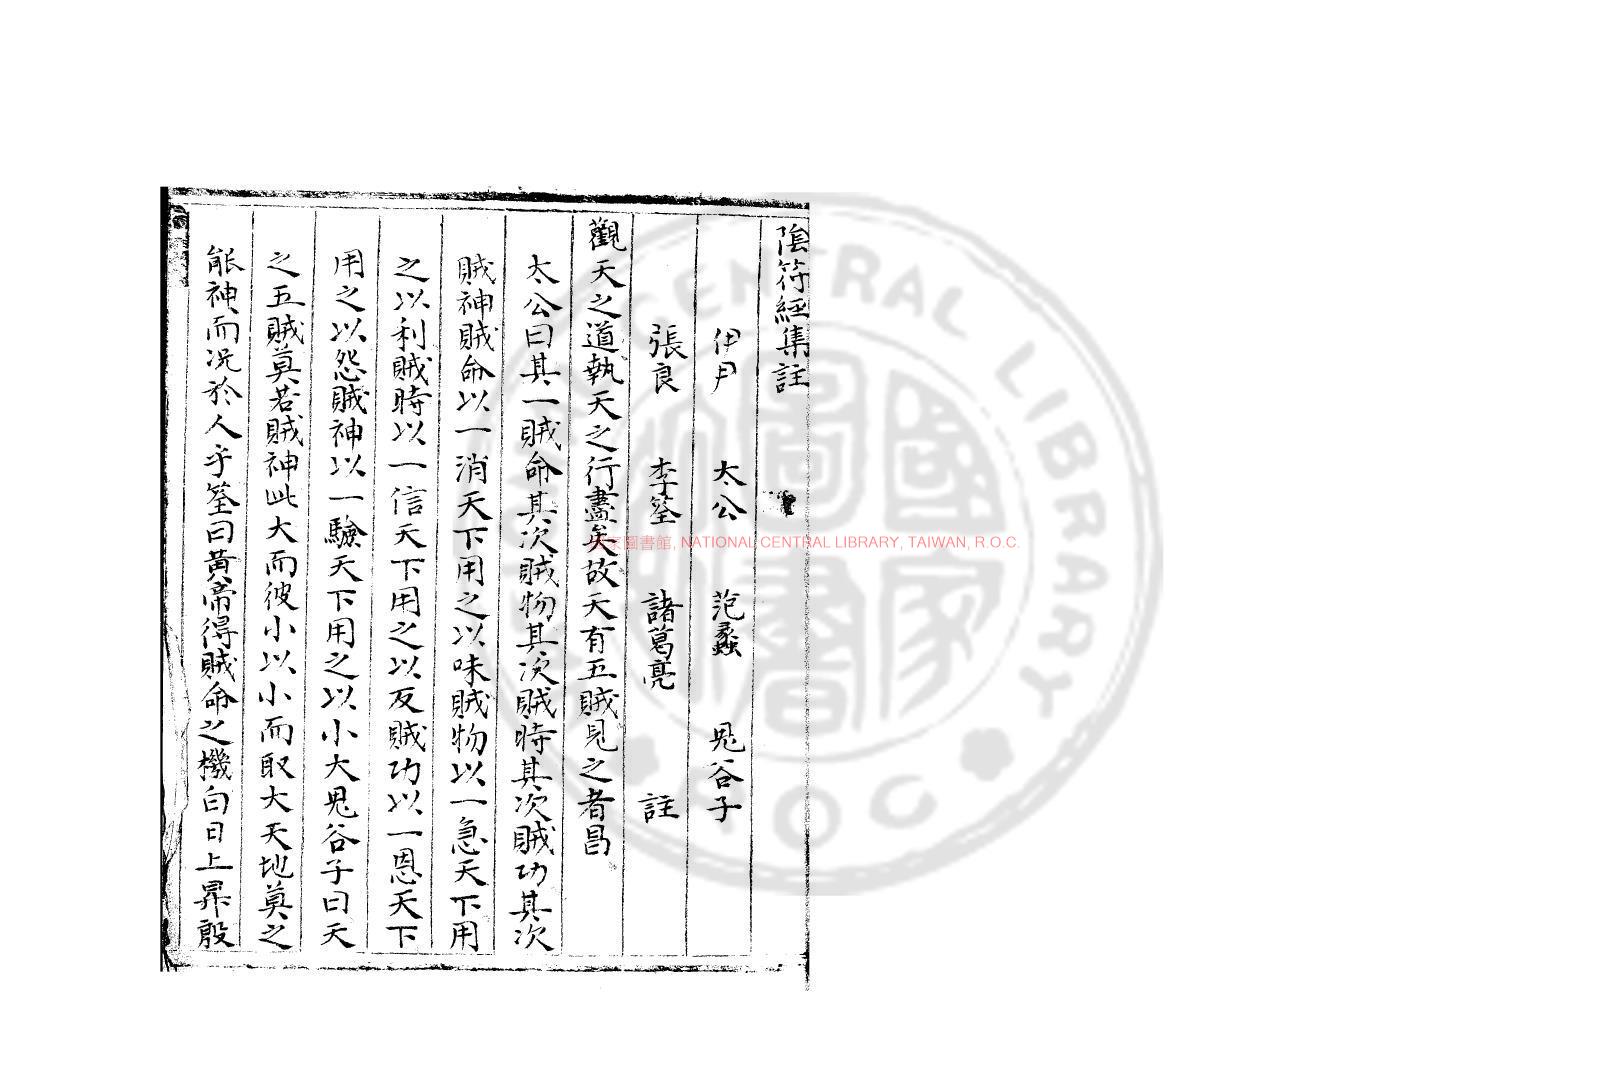 陰符經集註
伊尹 太公 范蠡 鬼谷子
張良 李筌 諸葛亮 註
觀天之道執天之行盡矣故天有五賊見之者昌
太公曰其一賊命其次賊物其次賊時其次賊功其次
賊神賊命以一消天下用之以味賊物以一急天下用
之以利賊時以一信天下用之以反賊功以一恩天下
用之以怨賊神以一驗天下用之以小大鬼谷子曰天
之五賊莫若賊神此大而彼小以小而取大天地莫之
能神而况於人乎筌曰黃帝得賊命之機白日上昇殷
國家圖書館, NATIONAL CENTRAL LIBRARY, TAIWAN, R.O.C.
NATIONAL CENTRAL LIBRARY
ROC
國家圖書